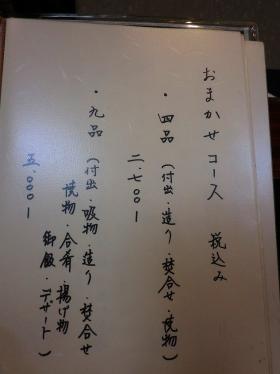 おまかせコース 税込み
・四品（付出・造り・焚合せ・焼物）
二.七〇〇ー
・九品（付出・吸物・造り・焚合せ
焼物・合肴・揚げ物
御飯・デザート）
五.〇〇〇ー